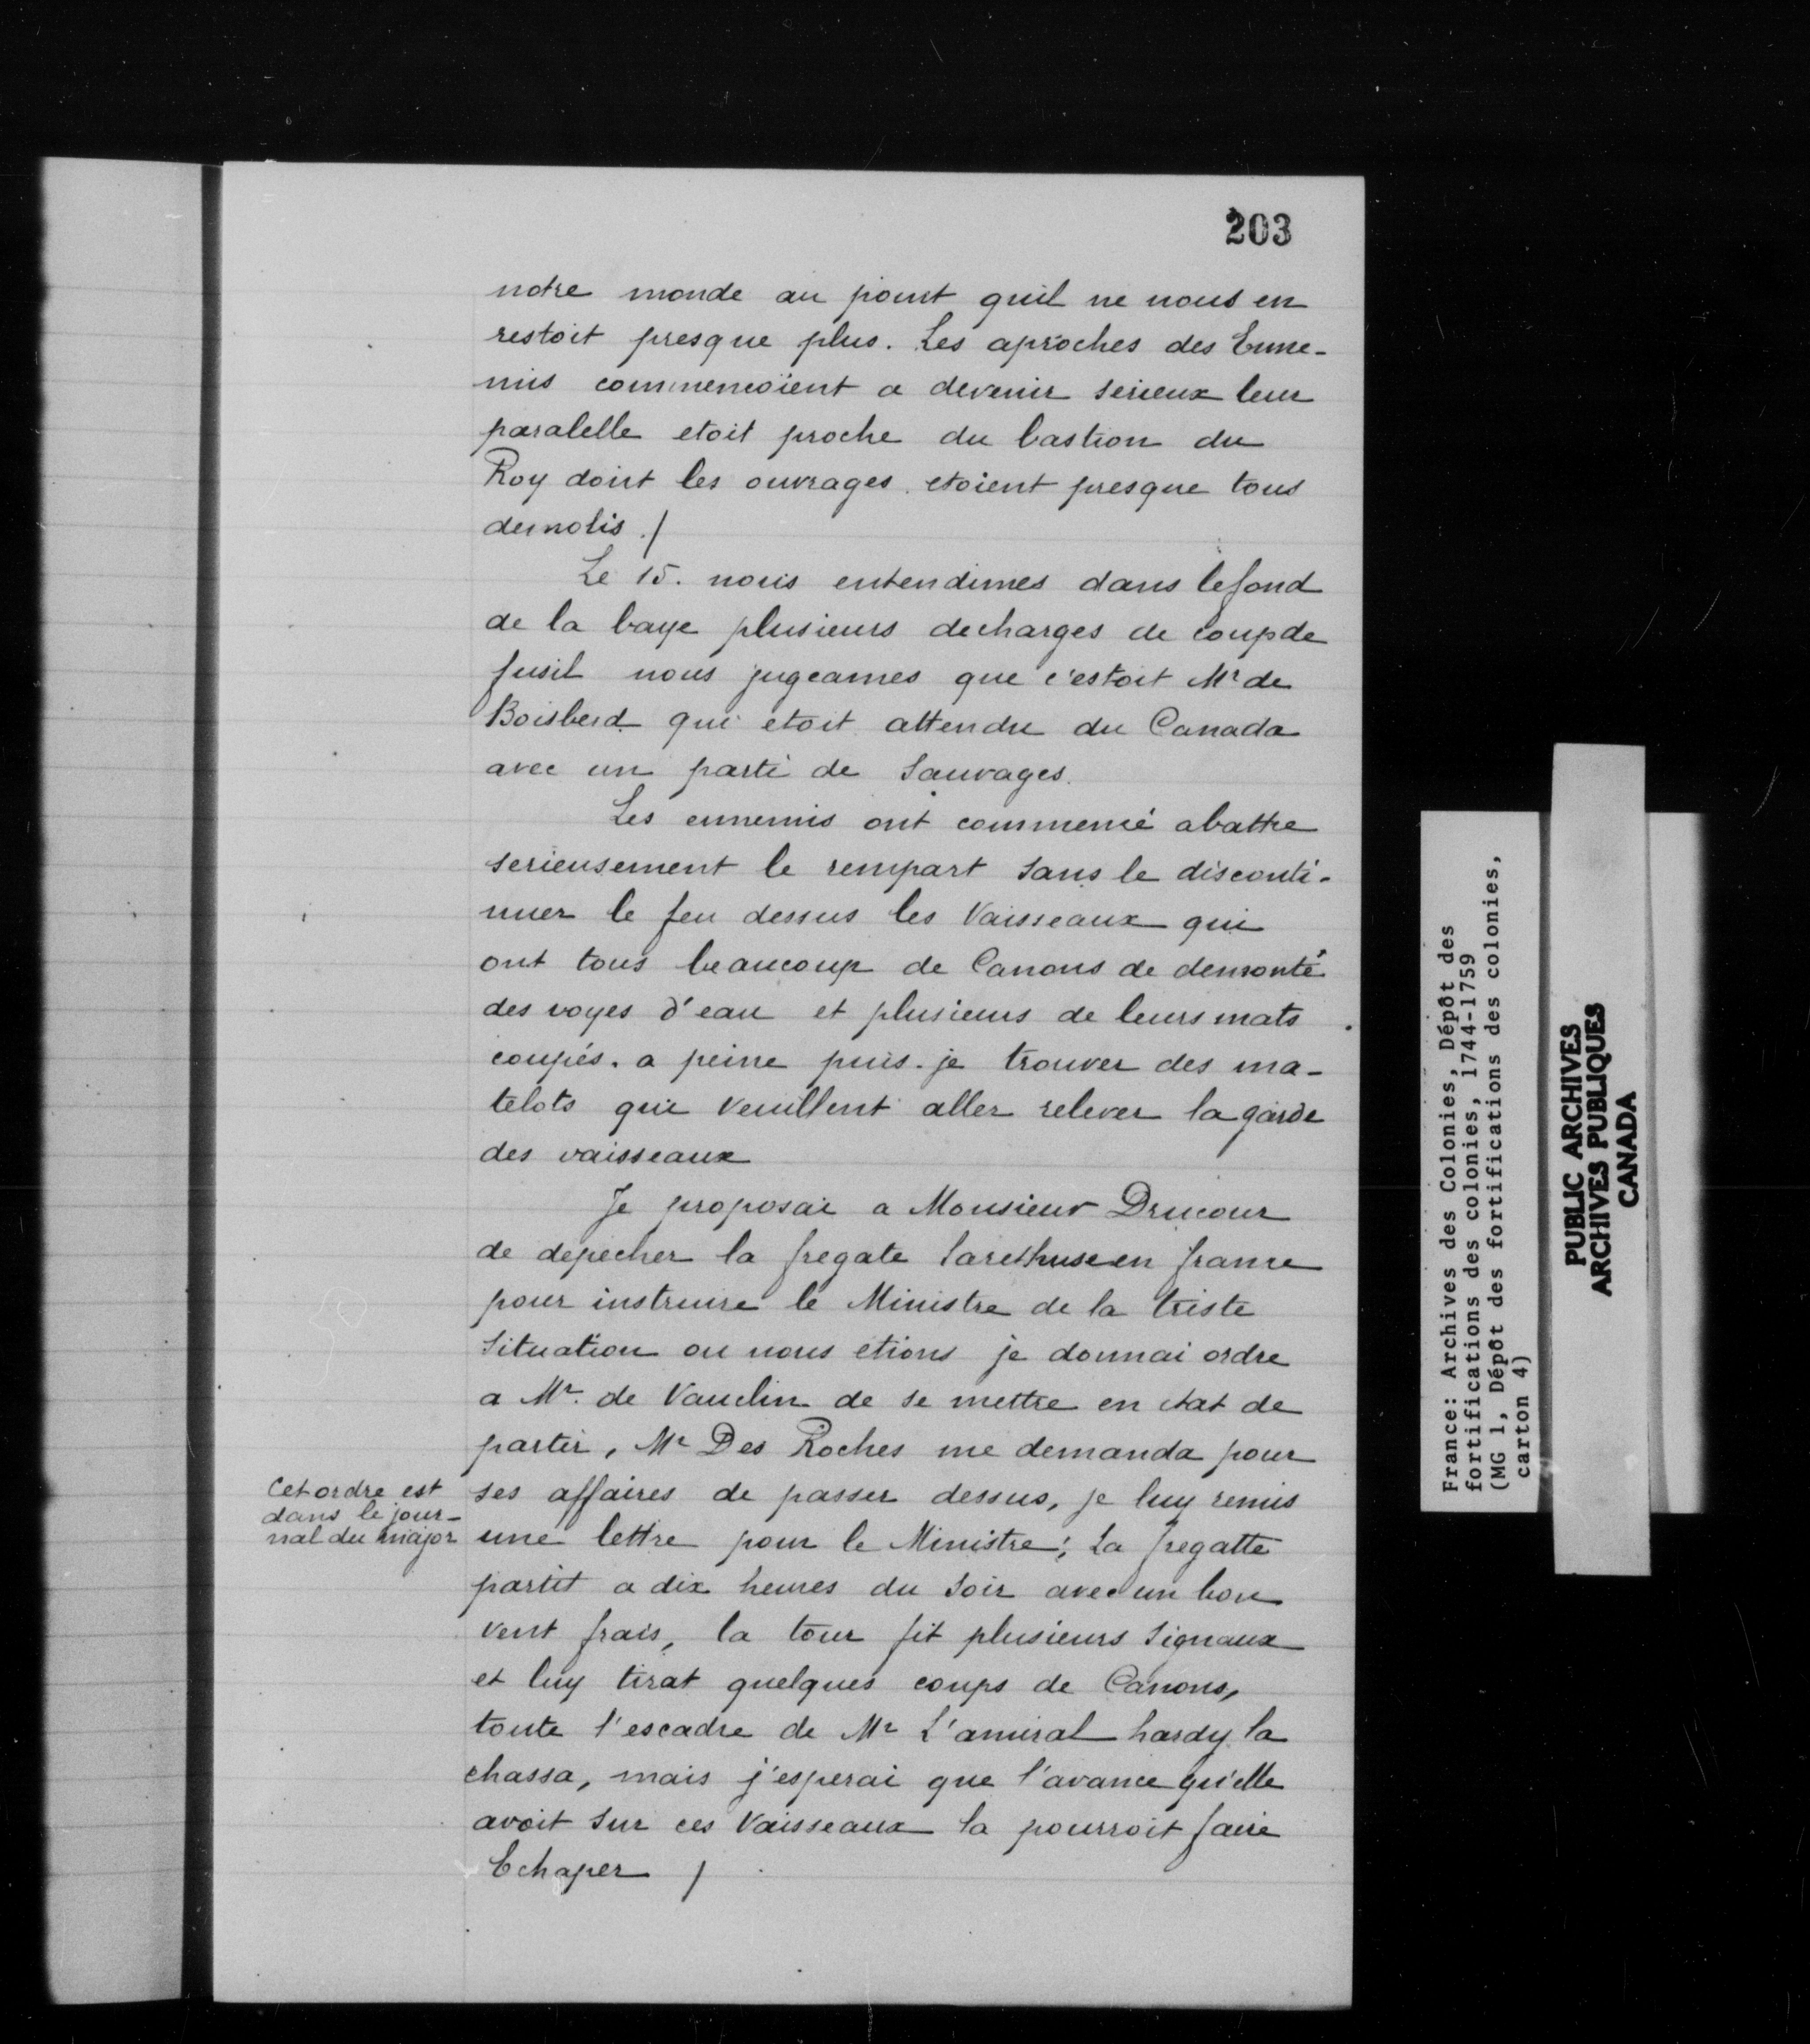 203
notre monde au point quil ne nous en
restoit presque plus. Les aproches des Enne-
mis commencoïent a devenir serieux leur
paralelle etoit proche du bastion du
Roy dont les ouvrages etoient presque tous
demolis ./
Le 15. nous entendimes dans le fond
de la baye plusieurs decharges de coup de
fusil nous jugeames que c'estoit Mr de
Boisberd qui etoit attendu du Canada
avec un parti de Sauvages.
Les ennemis ont commencé abattre
serieusement le rempart sans le disconti-
nuer le feu dessus les Vaisseaux qui
ont tous beaucoup de Canons de demonté
des voyes d'eau et plusieurs de leurs mats
coupés. a peine puis-je trouver des ma-
telots qui veuillent aller relever la garde
des vaisseaux
Je proposai a Monsieur Drucour
de depecher la fregate larethuse en france
pour instruire le Ministre de la triste
Situation ou nous etions je donnai ordre
a Mr. de Vauclin de se mettre en etat de
partir, Mr Des Roches me demanda pour
ses affaires de passer dessus, je luy remis
une lettre pour le Ministre; La fregatte
partit a dix heures du Soir avec un bon
vent frais, la tour fit plusieurs Signaux
et luy tirat quelques coups de Canons,
toute l'escadre de Mr L'amiral hardy la
chassa, mais j'esperai que l'avance qu'elle
avoit sur ces Vaisseaux la pourroit faire
Echaper /
Cet ordre est
dans le jour-
nal du major
France: Archives des Colonies, Dépôt des
fortifications des colonies, 1744-1759
(MG 1, Dépôt des fortifications des colonies,
carton 4)
PUBLIC ARCHIVES
ARCHIVES PUBLIQUES
CANADA